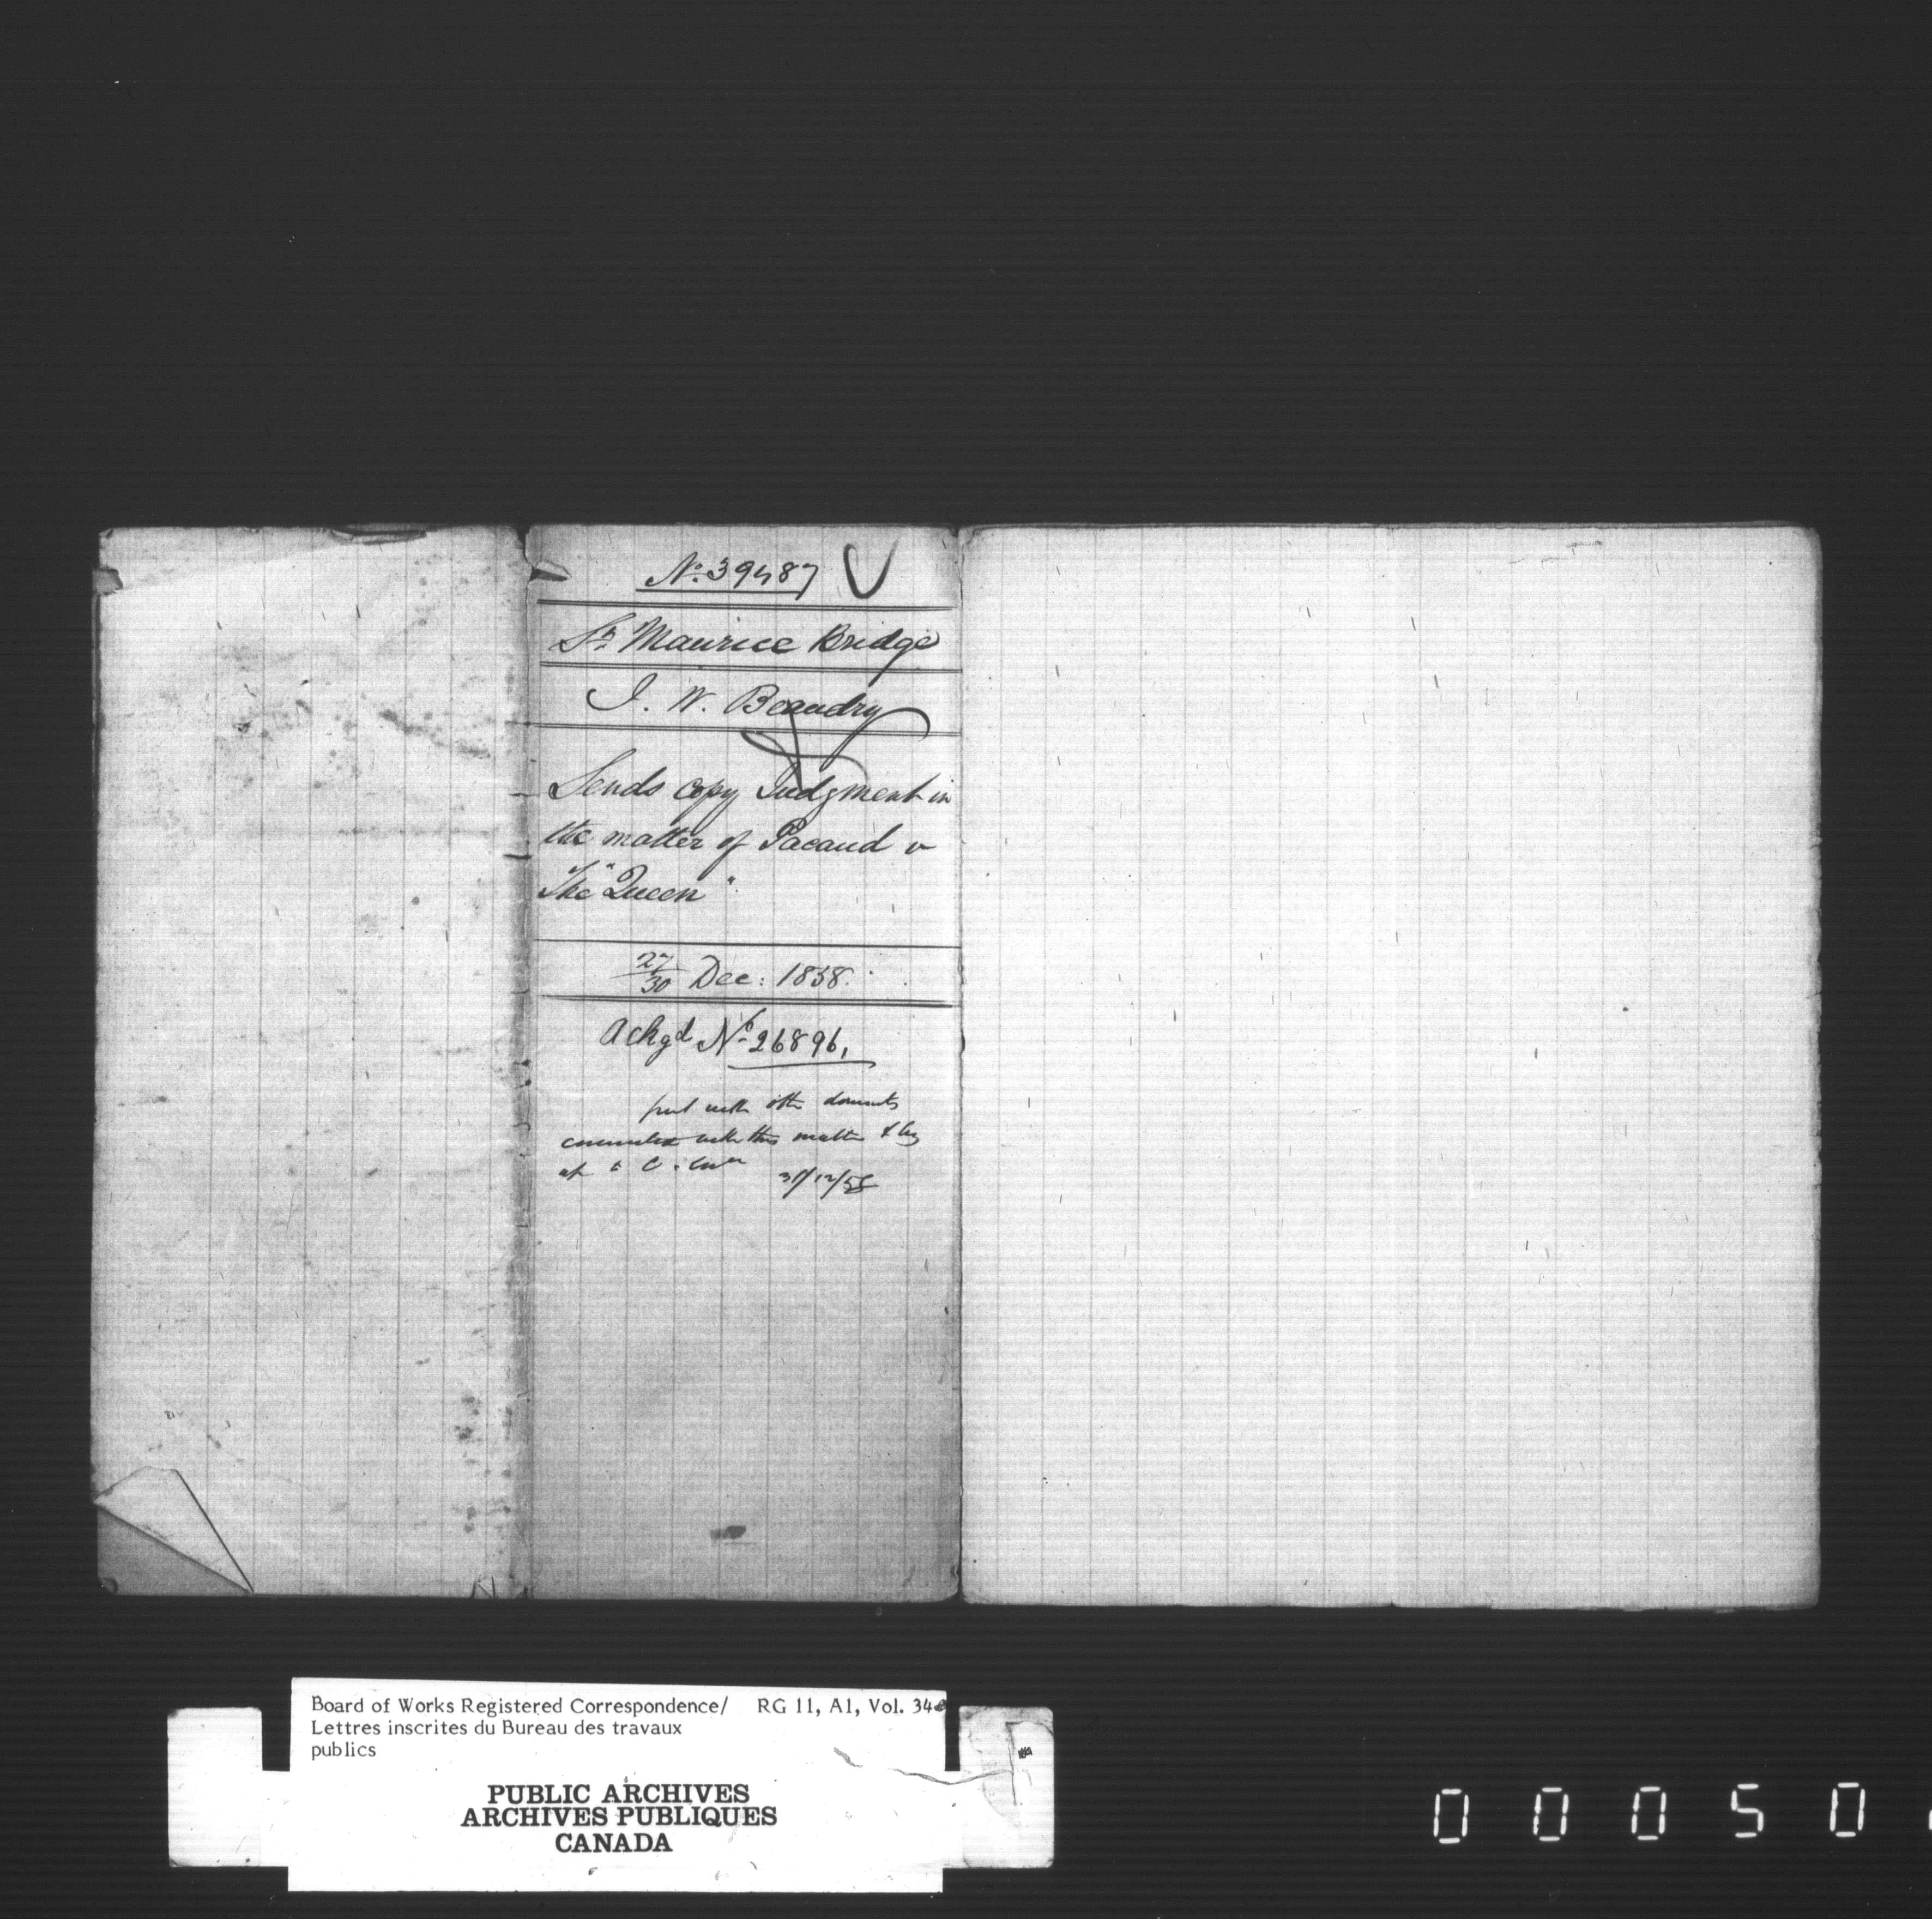 No. 39487
St. Maurice Bridge
J. W. Beaudry
Sends copy Judgment in
the matter of Pacaud v
The "Queen"
27/30 Dec: 1858.
Ackgd No 26896,
put with
with this matter &
31/12/58
Board of Works Registered Correspondence/ RG 11, A1, Vol. 34
Lettres inscrites du Bureau des travaux
publics
PUBLIC ARCHIVES
ARCHIVES PUBLIQUES
CANADA
0 0 0 5 0